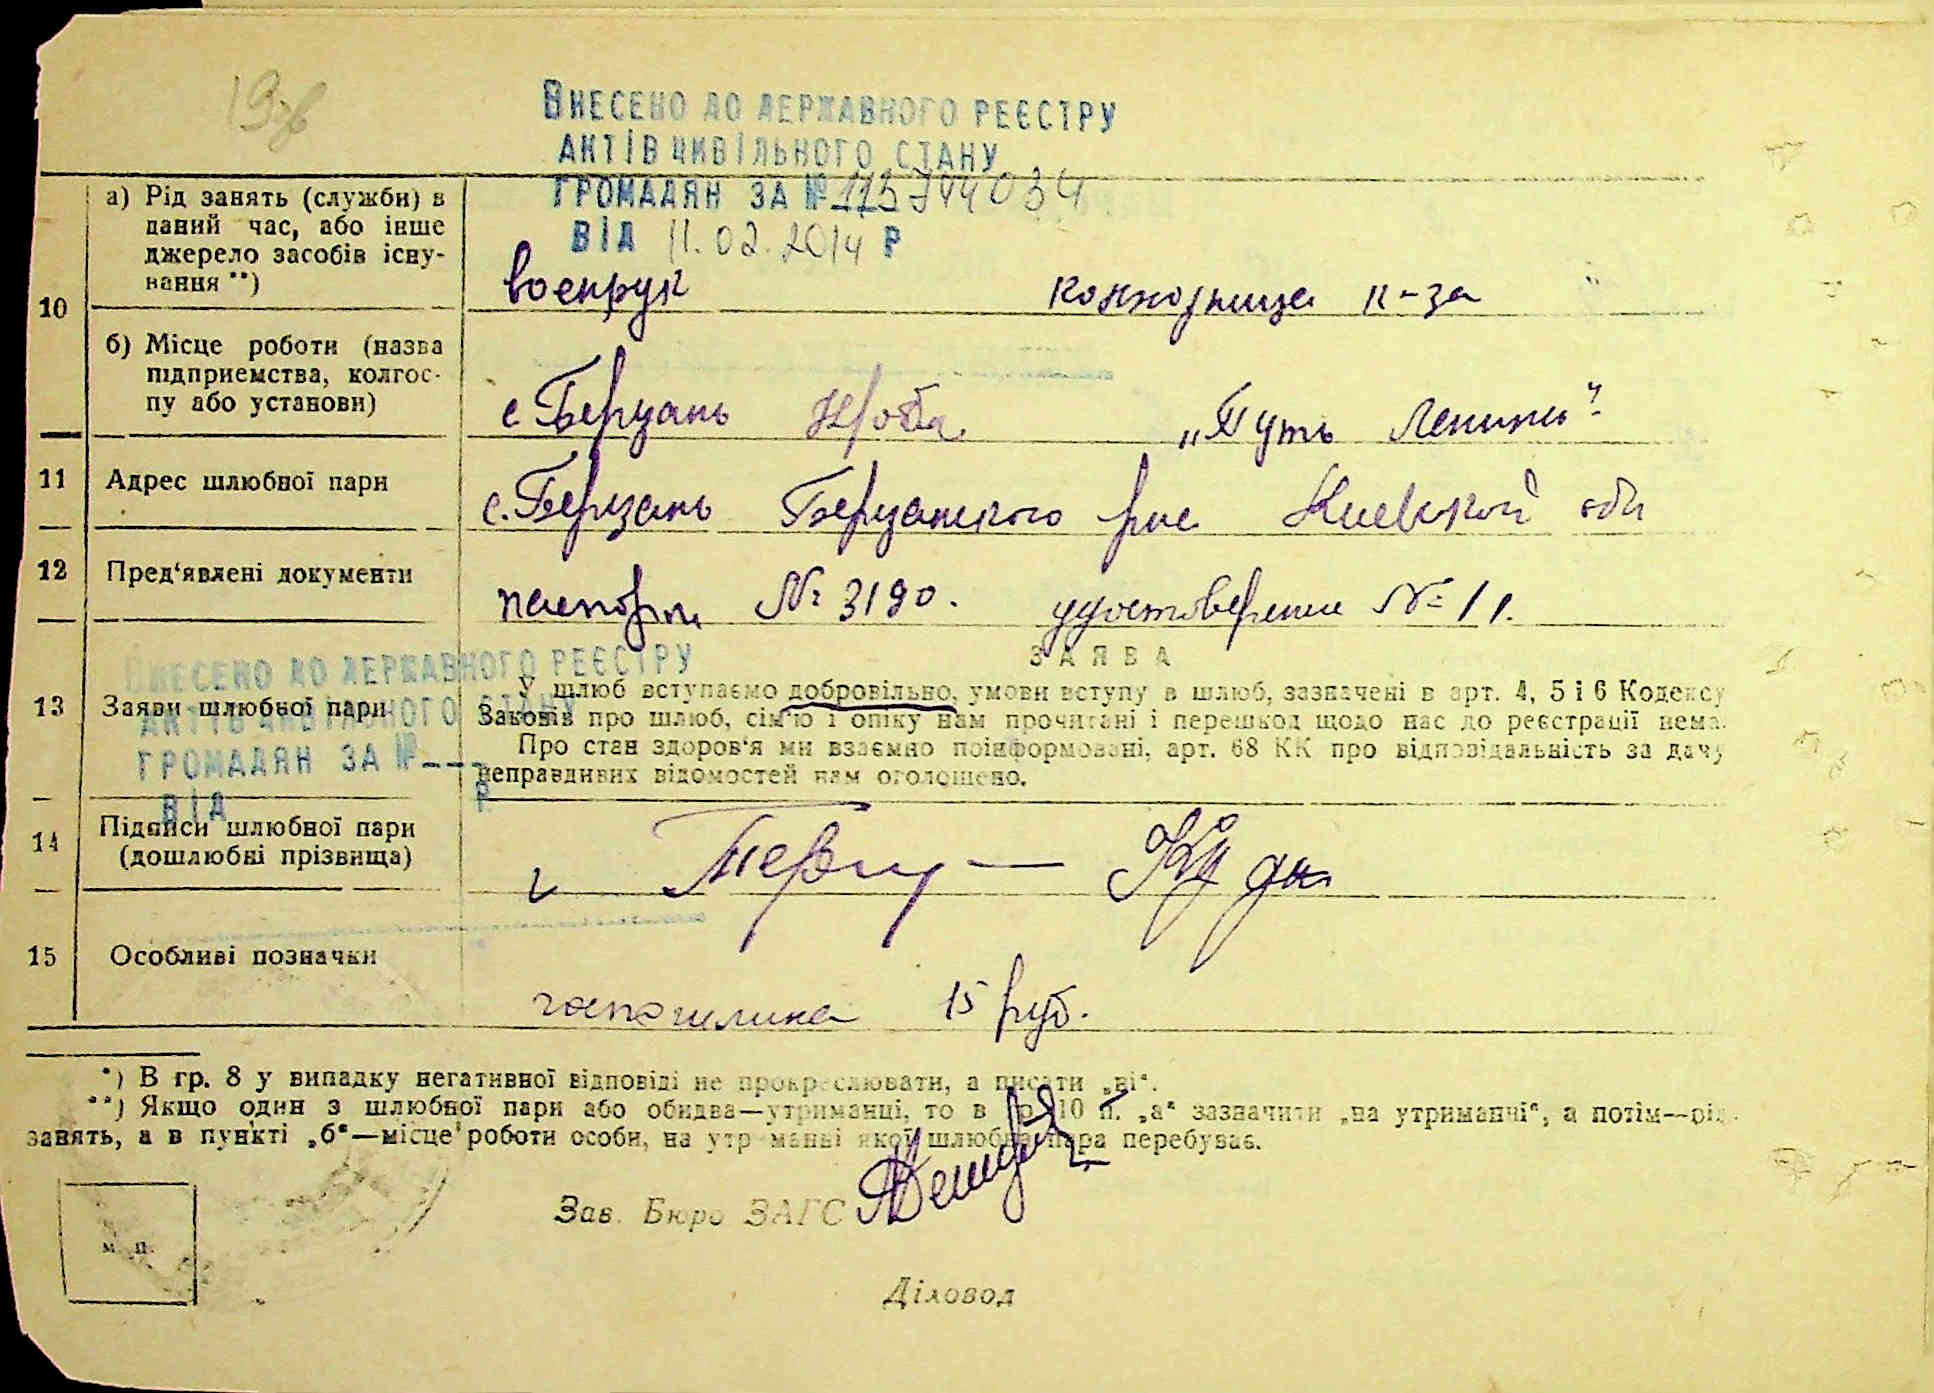 19зв
ВНЕСЕНО ДО ДЕРЖАВНОГО РЕЄСТРУ
АКТІВ ЦИВІЛЬНОГО СТАНУ
ГРОМАДЯН ЗА № 115744034
ВІД 11.02.2014 Р
10
а) Рід занять (служби) в
даний час, або інше
джерело засобів існу-
вання **)
военрук к-за
б) Місце роботи (назва
підприємства, колгос-
пу або установи)
с Березань „Путь Ленина"
11 Адрес шлюбної пари
с. Березань Березанского Киевской обл
12 Пред'явлені документи
паспорт № 3190. удостоверение № 11.
ВНЕСЕНО ДО ДЕРЖАВНОГО РЕЄСТРУ
АКТІВ ЦИВІЛЬНОГО СТАНУ
ГРОМАДЯН ЗА №
ВІД Р
13 Заяви шлюбної пари
ЗАЯВА
У шлюб вступаємо добровільно, умови вступу в шлюб, зазначені в арт. 4, 5 і 6 Кодексу
Законів про шлюб, сім'ю і опіку нам прочитані і перешкод щодо нас до реєстрації нема.
Про стан здоров'я ми взаємно поінформовані, арт. 68 КК про відповідальність за дачу
неправдивих відомостей нам оголошено.
14 Підписи шлюбної пари
(дошлюбні прізвища)
15 Особливі позначки
госпошлина 15 руб.
*) В гр. 8 у випадку негативної відповіді не прокреслювати, а писати „ні".
**) Якщо один з шлюбної пари або обидва—утриманці, то в гр. 10 п. „а" зазначити „на утриманні", а потім—рід
занять, а в пункті „б"—місце роботи особи, на утриманні якої шлюбна пара перебуває.
м. п.
Зав. Бюро ЗАГС
Діловод